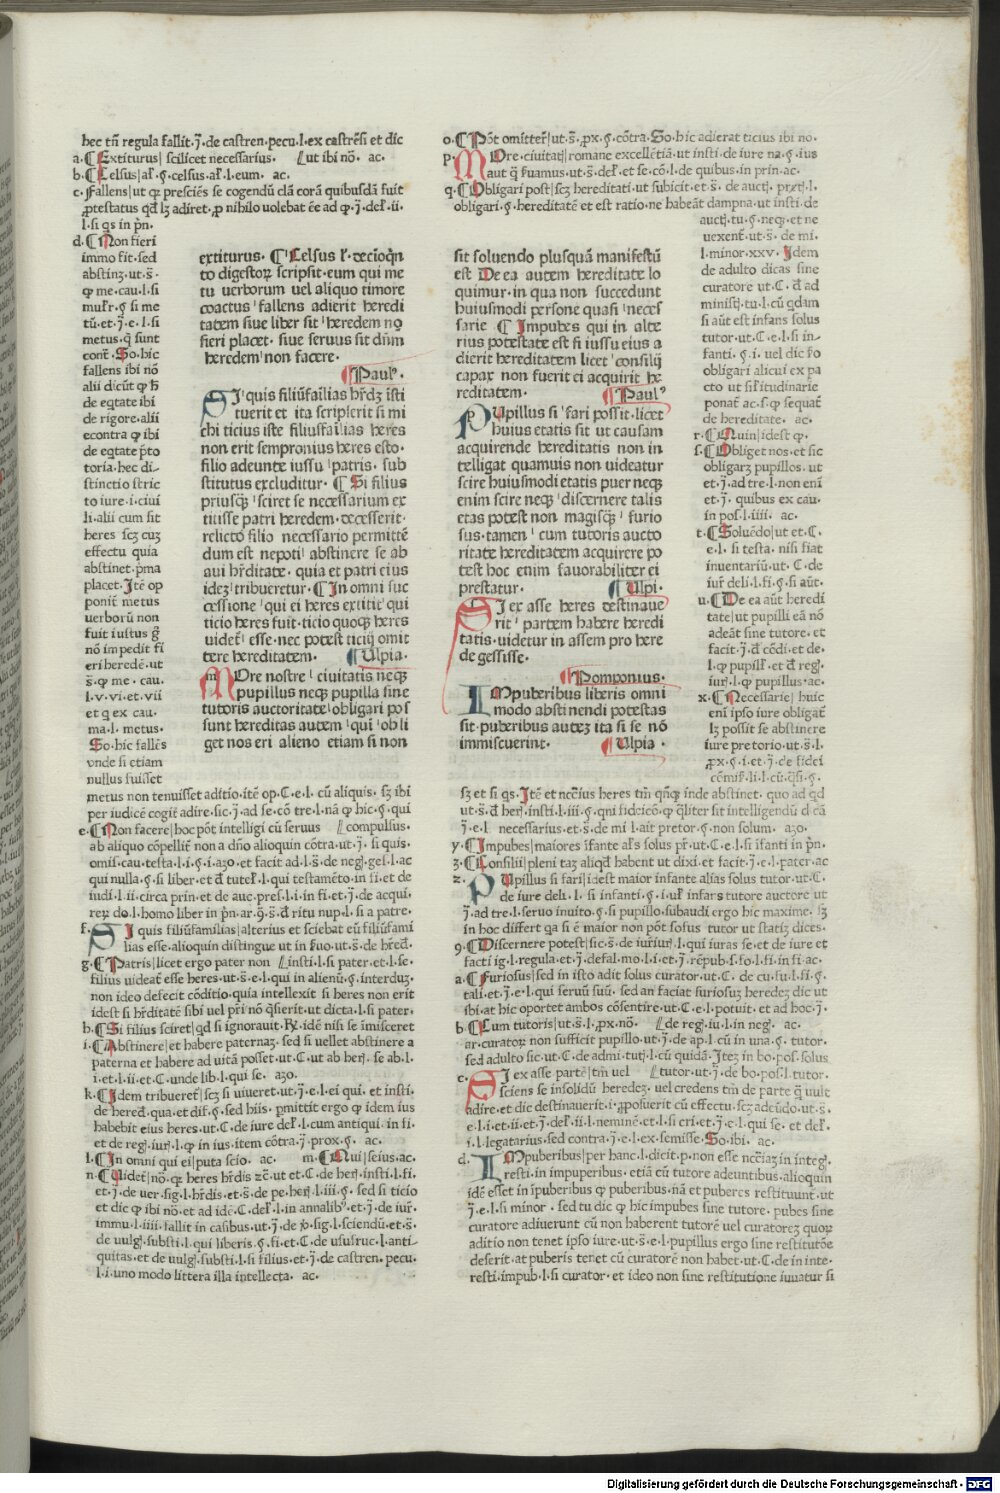 hec tñ regula fallit. ȷ̃. de castren. pecu. l. ex castrēsi et dic
a. ¶ Extiturus| scilicet necessarius. ut ibi nō. ac.
b. ¶ Celsus| al'. §. celsus. al'. l. eum. ac.
c. Fallens| ut qꝛ presciēs se cogendū clā corā quibusdā fuit
l. si qs in pñ.
d. ¶ Non fieri
immo fit. sed
abstinꝫ. ut. s̄.
mul'r. §. si me
metus. q̄ sunt
cont̄. So. hic
fallens ibi nō
alii dicūt ꝙ ħ
de eq̄tate ibi
de rigore. alii
econtra ꝙ ibi
de eq̄tate p̄to
toria. hec di-
stinctio stric
to iure. i. ciui
li. alii cum sit
heres scꝫ cuꝫ
effectu quia
abstinet. p̄ma
placet. Itē op
ponit̄ metus
uerborū non
fuit iustus
nō impedit fi
eri heredē. ut
s̄. ꝙ me. cau.
l. v. vi. et. vii
et q ex cau.
ma. l. metus.
So. hic fallēs
vnde si etiam
nullus fuisset
metus non tenuisset aditio. itē op. C. e. l. cū aliquis. sꝫ ibi
per iudicē cogit̄ adire. sic. ȷ̃. ad se. cō tre. l. nā ꝙ hic. §. qui
e. ¶ Non facere| hoc pōt intelligi cū seruus compulsus.
ab aliquo cōpellit̄ non a dño alioquin cōtra. ut. ȷ̃. si quis.
omis. cau. testa. l. i. §. i. azo. et facit ad. l. s̄. de neg. ges. l. ac
qui nulla. §. si liber. et đ tutel'. l. qui testamēto. in fi. et de
iudi. l. ii. circa prin. et de auc. pres. l. i. in fi. et. ȷ̃. de acqui.
f. SI quis filiusfamilias| alterius et sciebat eū filiūfami
lias esse. alioquin distingue ut in
g. ¶ Patris| licet ergo pater non insti. l. si pater. et. l. se.
filius uideat̄ esse heres. ut. s̄. e. l. qui in alienū. §. interduꝫ.
non ideo defecit cōditio. quia intellexit si heres non erit
idest si hr̄ditatē sibi uel pr̄i nō q̄sierit. ut dicta. l. si pater.
h. ¶ Si filius sciret| qd si ignorauit. R̄. idē nisi se īmisceret
i. ¶ Abstinere| et habere paternaꝫ. sed si uellet abstinere a
paterna et habere ad uitā posset. ut. C. ut ab her. se ab. l.
i. et. l. ii. et. C. unde lib. l. qui se. azo.
k. ¶ Idem tribueret̄| scꝫ si uiueret. ut. ȷ̃. e. l. ei qui. et insti.
de hered. qua. et dif. §. sed hiis. ꝑmittit ergo ꝙ idem ius
habebit eius heres. ut. C. de iure del'. l. cum antiqui. in fi.
et de reg. iur. l. ꝙ in ius. item cōtra. ȷ̃. prox. §. ac.
l. ¶ In omni qui ei| puta seio. ac. m. ¶ Qui| seius. ac.
n. ¶ Videt̄| nō. ꝙ heres hr̄dis ꝛc̄. ut et. C. de her. insti. l. fi.
et. ȷ̃. de uer. sig. l. hr̄dis. et. s̄. de pe. her. l. iii. §. sed si ticio
et dic ꝙ ibi nō. et ad idē. C. del'. l. in annalibꝰ. et. ȷ̃. de iur.
immu. l. iiii. fallit in casibus. ut. ȷ̃. de ꝟo. sig. l. sciendū. et. s̄.
de uulg. substi. l. qui liberis. §. fi. et. C. de usufruc. l. anti-
quitas. et de uulg. substi. l. si filius. et. ȷ̃. de castren. pecu.
l. i. uno modo littera illa intellecta. ac.
extiturus. ¶ Celsus l'. decioqn
to digestoꝝ scripsit. eum qui me
tu uerborum uel aliquo timore
coactus fallens adierit heredi
tatem siue liber sit heredem nō
fieri placet. siue seruus sit dñm
heredem non facere.
¶ Paulꝰ.
SI quis filiūfamilias hr̄dꝫ isti
tuerit et ita scripserit si mi
chi ticius iste filiusfamilias heres
non erit sempronius heres esto.
filio adeunte iussu patris. sub
stitutus excluditur. ¶ Si filius
priusqꝫ sciret se necessarium ex
titisse patri heredem. decesserit.
relicto filio necessario permittē
dum est nepoti abstinere se ab
aui hr̄ditate. quia et patri eius
ideꝫ tribueretur. ¶ In omni suc
cessione qui ei heres extitit qui
ticio heres fuit. ticio quoqꝫ heres
uidet̄ esse. nec potest ticij omit
tere hereditatem. ¶ Ulpia.
MOre nostre ciuitatis neqꝫ
pupillus neqꝫ pupilla sine
tutoris auctoritate obligari pos
sunt hereditas autem qui obli
get nos eri alieno etiam si non
o. ¶ Pōt omitter̄| ut. s̄. ꝓx. §. cōtra. So. hic adierat ticius ibi nō.
p. MOre. ciuitatȷ| romane excellētiā. ut insti. de iure na. §. ius
aut q̄ seruamus. ut. s̄. del'. et se. cō. l. de quibus. in prin. ac.
q. ¶ Obligari post| scꝫ hereditati. ut subicit. et. s̄. de auctȷ.
obligari. §. hereditatē et est ratio. ne habeāt dampna. ut insti. de
auctȷ. tu. §. neqꝫ. et ne
uexent̄. ut. s̄. de mi.
l. minor. xxv. Idem
de adulto dicas sine
curatore ut. C. đ ad
ministȷ. tu. l. cū qdam
si aūt est infans solus
tutor. ut. C. e. l. si in-
fanti. §. i. uel dic
obligari alicui ex pa
cto ut sil'itudinarie
ponat̄ ac. s. ꝙ sequat̄
de hereditate. ac.
r. ¶ Quin| idest ꝙ.
s. ¶ Obliget nos. et sic
obligarꝫ pupillos. ut
et. ȷ̃. ad tre. l. non eni
et. ȷ̃. quibus ex cau.
in pos. l. iiii. ac.
t. ¶ Soluēdo| ut et. C.
e. l. si testa. nisi fiat
inuentariū. ut. C. de
iur̄ deli. l. fi. §. si aūt.
u. ¶ De ea aūt heredi
tate| ut pupilli eā nō
adeāt sine tutore. et
facit. ȷ̃. đ cōdi. et de.
l. ꝙ pupill'. et đ reg.
iur. l. ꝙ pupillus. ac.
x. ¶ Necessarie| huic
eni ipso iure obligat̄
lꝫ possit se abstinere
iure pretorio. ut. s̄. l.
ꝓx. §. i. et. ȷ̃. de fidei
sꝫ et si qs. Itē et nccīius heres tm̄ qñqꝫ inde abstinet. quo ad qd
ȷ̃. e. l. necessarius. et. s̄. de mi. l. ait pretor. §. non solum. azo.
y. ¶ Impubes| maiores īfante al's solus pr̄. ut. C. e. l. si īfanti in pñ.
z. ¶ Consilii| pleni taꝫ aliqđ habent ut dixi. et facit. ȷ̃. e. l. pater. ac
ꝛ. PUpillus si fari| idest maior infante alias solus tutor. ut. C.
de iure deli. l. si infanti. §. i. ul' infars tutore auctore ut
ȷ̃. ad tre. l. seruo inuito. §. si pupillo. subaudi ergo hic maxime. sꝫ
in hoc differt qa si ē maior non pōt solus tutor ut statiꝫ dices.
9. ¶ Discernere potest| sic. s̄. de iur̄iur̄. l. qui iuras se. et de iure et
facti ig. l. regula. et. ȷ̃. de fal. mo. l. i. et. ȷ̃. rēpub. s. fo. l. fi. in fi. ac.
a. ¶ Furiosus| sed in isto adit solus curator. ut. C. de cu. fu. l. fi. §.
tali. et. ȷ̃. e. l. qui seruū suū. sed an faciat furiosuꝫ heredeꝫ dic ut
ibi. at hic oportet ambos cōsentire. ut. C. e. l. potuit. et ad hoc. ȷ̃.
b. ¶ Cum tutoris| ut. s̄. l. ꝓx. nō. de reg. iu. l. in neg. ac.
ar. curatoꝝ non sufficit pupillo. ut. ȷ̃. de ap. l. cū in una. §. tutor.
sed adulto sic. ut. C. de admi. tutȷ. l. cū quidā. Iteꝫ in bo. pos. solus
c. SI ex asse partē| tm̄ uel tutor. ut. ȷ̃. de bo. pos. l. tutor.
sciens se insolidū heredeꝫ. uel credens tm̄ de parte q̄ uult
adire. et dic destinauerit. i. ꝓposuerit cū effectu. scꝫ adeūdo. ut. s̄.
e. l. i. et. ii. et. ȷ̃. del'. l. neminē. et. l. si eri. et. ȷ̃. e. l. qui se. et del'.
i. l. legatarius. sed contra. ȷ̃. e. l. ex. semisse. So. ibi. ac.
d. IMpuberibus| per hanc. l. dicit. p. non esse nccīaꝫ in integ.
resti. in impuperibus. etiā cū tutore adeuntibus. alioquin
idē esset in īpuberibus ꝙ puberibus. nā et puberes restituunt. ut
ȷ̃. e. l. si minor. sed tu dic ꝙ hic impubes sine tutore. pubes sine
curatore adiuerunt cū non haberent tutorē uel curatoreꝫ quoꝝ
aditio non tenet ipso iure. ut. s̄. e. l. pupillus ergo sine restitutōe
deserit. at puberis tenet cū curatorē non habet. ut. C. de in inte.
resti. impub. l. si curator. et ideo non sine restitutione iuuatur si
sit soluendo plusquā manifestū
est De ea autem hereditate lo
quimur. in qua non succedunt
huiusmodi persone quasi neces
sarie ¶ Impubes qui in alte
rius potestate est si iussu eius a
dierit hereditatem licet consilij
capax non fuerit ei acquirit he
reditatem. ¶ Paulꝰ
PUpillus si fari possit. licet
huius etatis sit ut causam
acquirende hereditatis non in
telligat quamuis non uideatur
scire huiusmodi etatis puer neqꝫ
enim scire neqꝫ discernere talis
etas potest non magisqꝫ furio
sus. tamen cum tutoris aucto
ritate hereditatem acquirere po
test hoc enim fauorabiliter ei
prestatur. ¶ Ulpi.
SI ex asse heres destinaue
rit partem habere heredi
tatis. uidetur in assem pro here
de gessisse.
¶ Pomponius.
IMpuberibus liberis omni
modo abstinendi potestas
fit. puberibus auteꝫ ita si se nō
immiscuerint. ¶ Ulpia.
Digitalisierung gefördert durch die Deutsche Forschungsgemeinschaft - DFG